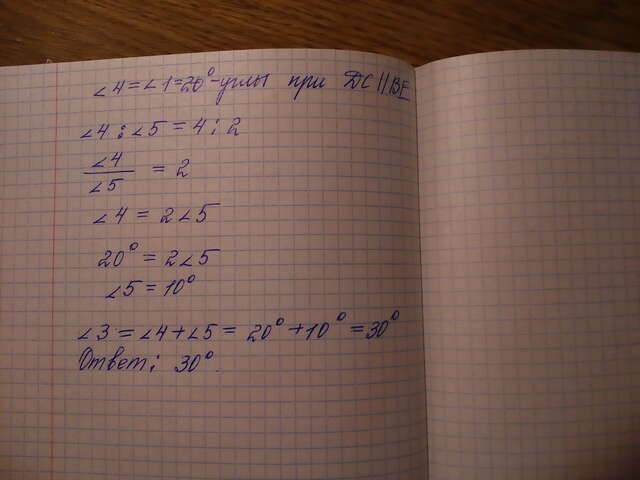 ∠4 = ∠1 = 20° - углы при DC || BE
∠4 : ∠5 = 4 : 2
∠4 / ∠5 = 2
∠4 = 2∠5
20° = 2∠5
∠5 = 10°
∠3 = ∠4 + ∠5 = 20° + 10° = 30°
Ответ: 30°.